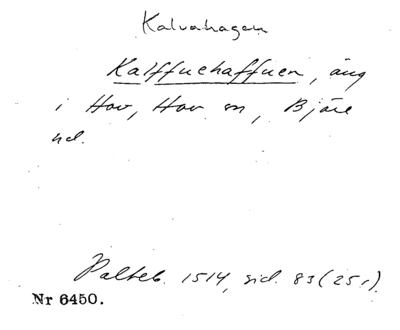 Kalvahagen
Kalffuehaffuen, äng
i Hov, Hov sn, Bjäre
hd.
Palteb. 1514, sid. 83 (25r).
Nr 6450.